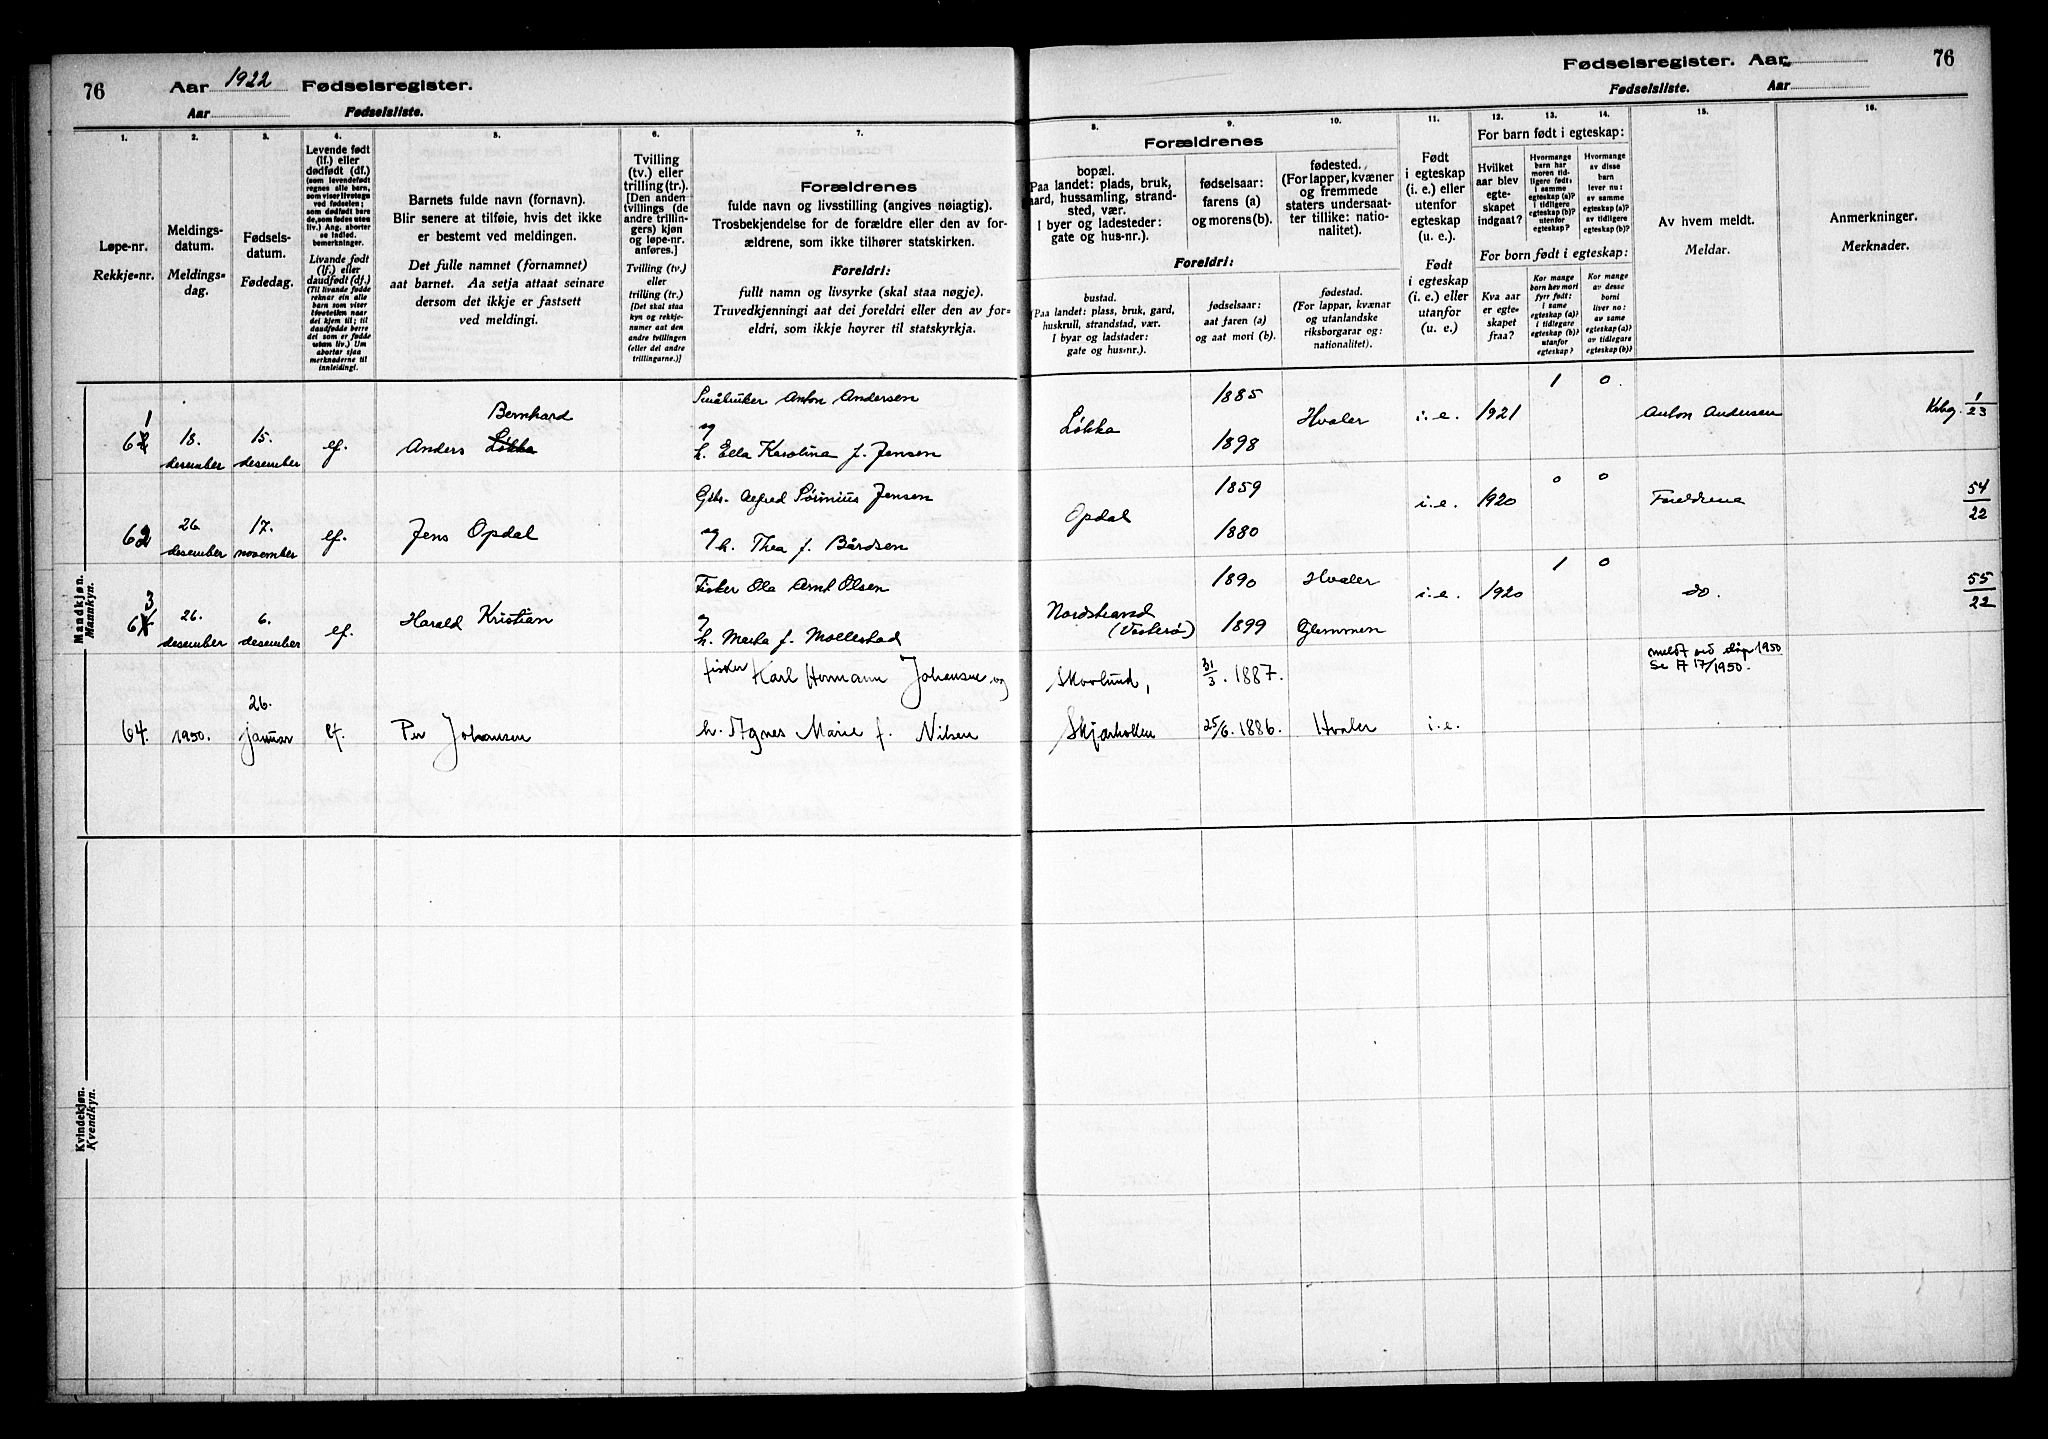 76 Aar 1922 Fødselsregister.
Aar Fødselsliste.
Fødselsregister. Aar 76
Fødselsliste. Aar
1. 2. 3. 4. 5. 6. 7.
Løpe-nr.
Rekkje-nr.
Meldings-
datum.
Meldings-
dag.
Fødsels-
datum.
Fødedag.
Levende født
(lf.) eller
dødfødt (df.)
(som levendefødt
regnes alle barn,
som viser livstegn
ved fødselen;
som dødfødt bare
de, som fødes uten
liv.) Ang. aborter
se indled.
bemerkninger.
Livande født
(lf.) eller
daudfødt (df.)
(Til livande fødde
reknar ein alle
born som viser
livsteikn naar
dei kjem til; til
daudfødde berre
dei som er fødde
utan liv.) Um
abortar sjaa
merknaderne til
innleidingi.
Barnets fulde navn (fornavn).
Blir senere at tilføie, hvis det ikke
er bestemt ved meldingen.
Det fulle namnet (fornamnet)
aat barnet. Aa setja attaat seinare
dersom det ikkje er fastsett
ved meldingi.
Tvilling
(tv.) eller
trilling (tr.).
[Den anden
tvillings (de
andre trillin-
gers) kjøn
og løpe-nr.
anføres.]
Tvilling (tv.)
eller
trilling (tr.)
[Det skal staa
kyn og rekkje-
numer aat den
andre tvillingen
(eller dei andre
trillingarne.)]
Forældrenes
fulde navn og livsstilling (angives nøiagtig).
Trosbekjendelse for de forældre eller den av for-
ældrene, som ikke tilhører statskirken.
Foreldri:
fullt namn og livsyrke (skal staa nøgje).
Truvedkjenningi aat dei foreldri eller den av for-
eldri, som ikkje høyrer til statskyrkja.
8. 9. 10. 11. 12. 13. 14. 15. 16.
Forældrenes
bopæl.
Paa landet: plads, bruk,
aard, hussamling, strand-
sted, vær.
I byer og ladesteder:
gate og hus-nr.).
fødselsaar:
farens (a)
og morens(b).
fødested.
(For lapper, kvæner
og fremmede
staters undersaat-
ter tillike: natio-
nalitet).
Foreldri:
bustad.
(Paa landet: plass, bruk, gard,
huskrull, strandstad, vær.
I byar og ladstader:
gate og hus-nr.).
fødselsaar:
aat faren (a)
og aat mori (b).
fødestad.
(For lappar, kvænar
og utanlandske
riksborgarar og:
nationalitet).
Født
i egteskap
(i. e.) eller
utenfor
egteskap
(u. e.).
Født
i egteskap
(i. e.) eller
utanfor
(u. e.)
For barn født i egteskap:
Hvilket
aar blev
egte-
skapet
indgaat?
Hvormange
barn har
moren tid-
ligere født:
i samme
egteskap (a)?
i tidligere
egteskap (b)?
utenfor
egteskap?
Hvormange
av disse
barn
lever nu:
av samme
egteskap (a)?
av tidligere
egteskap (b)?
For born født i egteskap:
Kva aar
er egte-
skapet
fraa?
Kor mange
born hev mori
fyrr født:
i same
egteskap (a)?
i tidlegare
egteskap (b)?
utanfor
egteskap?
Kor mange
av desse
borni
liver no:
av same
egteskap (a)?
av tidlegare
egteskap (b)?
Av hvem meldt.
Meldar.
Anmerkninger.
Merknader.
Mandkjøn.
Mannkyn.
61 18. desember 15. desember lf. Anders Løkka Bernhard
Småbruker Anton Andersen
og
h. Ella Karolina f. Jensen
Løkka 1885 1898 Hvaler i.e. 1921 1 0. Anton Andersen 1/23
62 26. desember 17. november lf. Jens Opdal
Gbr. Alfred Sørinius Jensen
og h. Thea f. Bårdsen
Opdal 1859 1880 i.e. 1920 0 0 Foreldrene 54/22
63 26. desember 6. desember lf. Harald Kristian
Fisker Ola Arnt Olsen
og
h. Marta f. Mollestad
Nordstrand (Vesterø) 1890 1899 Hvaler Glemmen i.e. 1920 1 0 do. 55/22
64. 1950. 26. januar lf. Per Johansen
fisker Karl Hermann Johansen og
h. Agnes Marie f. Nilsen
Skjærhollen 31/3. 1887. 25/6. 1886. Hvaler i.e.
meldt ved 1950
Se 17/1950.
Kvindekjøn.
Kvendkyn.